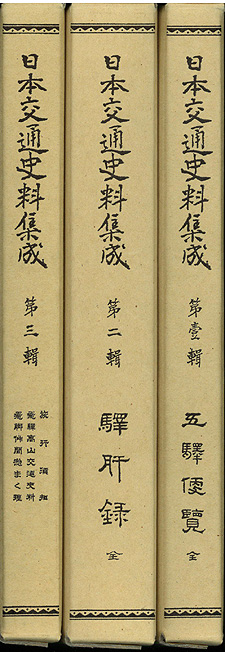 日本交通史料集成
第壹輯
五驛便覽
全
日本交通史料集成
第二輯
驛肝録
全
日本交通史料集成
第三輯
旅行須知
飛驒高山交通史料